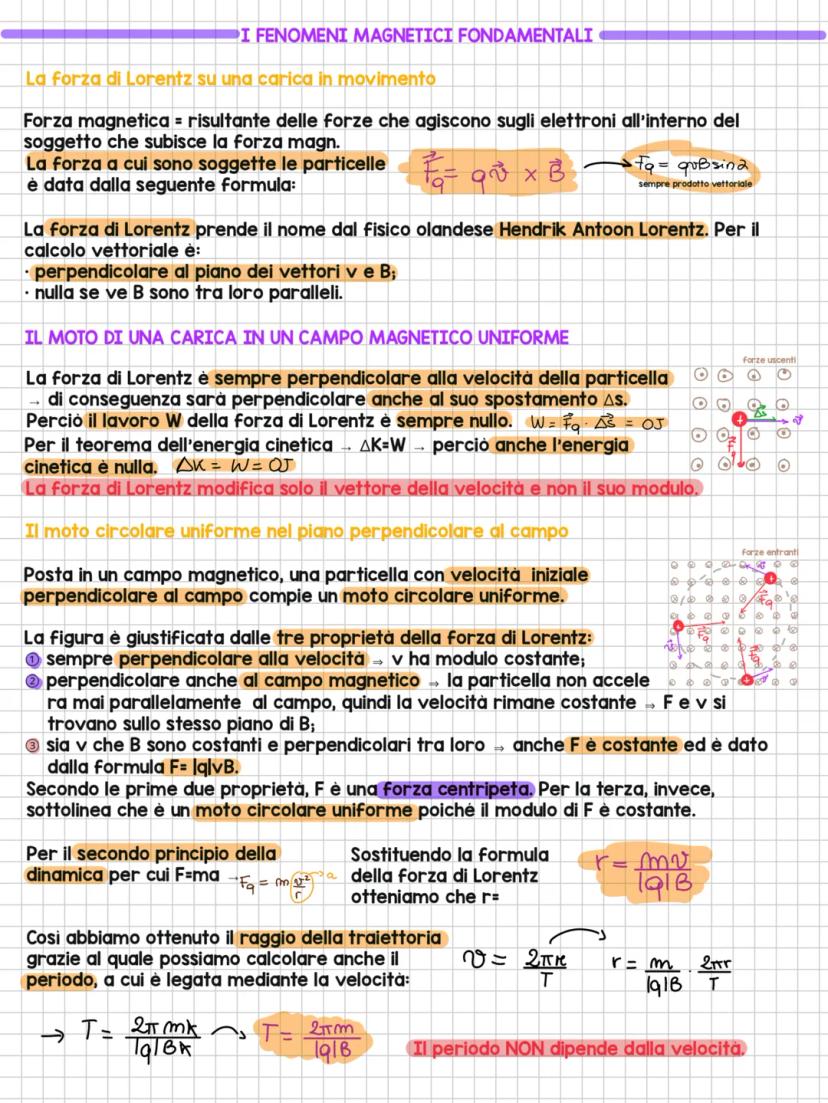 I FENOMENI MAGNETICI FONDAMENTALI
La forza di Lorentz su una carica in movimento
Forza magnetica = risultante delle forze che agiscono sugli elettroni all'interno del
soggetto che subisce la forza magn.
La forza a cui sono soggette le particelle
è data dalla seguente formula:
F⃗q = qv⃗ x B⃗
Fq = qvBsinα
sempre prodotto vettoriale
La forza di Lorentz prende il nome dal fisico olandese Hendrik Antoon Lorentz. Per il
calcolo vettoriale è:
· perpendicolare al piano dei vettori v e B;
· nulla se ve B sono tra loro paralleli.
IL MOTO DI UNA CARICA IN UN CAMPO MAGNETICO UNIFORME
forze uscenti
La forza di Lorentz è sempre perpendicolare alla velocità della particella
→ di conseguenza sarà perpendicolare anche al suo spostamento Δs.
Perciò il lavoro W della forza di Lorentz è sempre nullo. W = F⃗q · Δs⃗ = 0J
Per il teorema dell'energia cinetica → ΔK=W → perciò anche l'energia
cinetica è nulla. ΔK = W = 0J
La forza di Lorentz modifica solo il vettore della velocità e non il suo modulo.
+ Δs⃗ v⃗
F⃗q
Il moto circolare uniforme nel piano perpendicolare al campo
forze entranti
Posta in un campo magnetico, una particella con velocità iniziale
perpendicolare al campo compie un moto circolare uniforme.
La figura è giustificata dalle tre proprietà della forza di Lorentz:
① sempre perpendicolare alla velocità ⇒ v ha modulo costante;
② perpendicolare anche al campo magnetico ⇒ la particella non accele
ra mai parallelamente al campo, quindi la velocità rimane costante ⇒ F e v si
trovano sullo stesso piano di B;
③ sia v che B sono costanti e perpendicolari tra loro ⇒ anche F è costante ed è dato
dalla formula F= |q|vB.
Secondo le prime due proprietà, F è una forza centripeta. Per la terza, invece,
sottolinea che è un moto circolare uniforme poiché il modulo di F è costante.
Per il secondo principio della
dinamica per cui F=ma → Fq = m v²/r → a
Sostituendo la formula
della forza di Lorentz
otteniamo che r=
r = mv/|q|B
Così abbiamo ottenuto il raggio della traiettoria
grazie al quale possiamo calcolare anche il
periodo, a cui è legata mediante la velocità:
v = 2πr/T
r = m/|q|B · 2πr/T
→ T = 2πmr/|q|Br
T = 2πm/|q|B
Il periodo NON dipende dalla velocità.